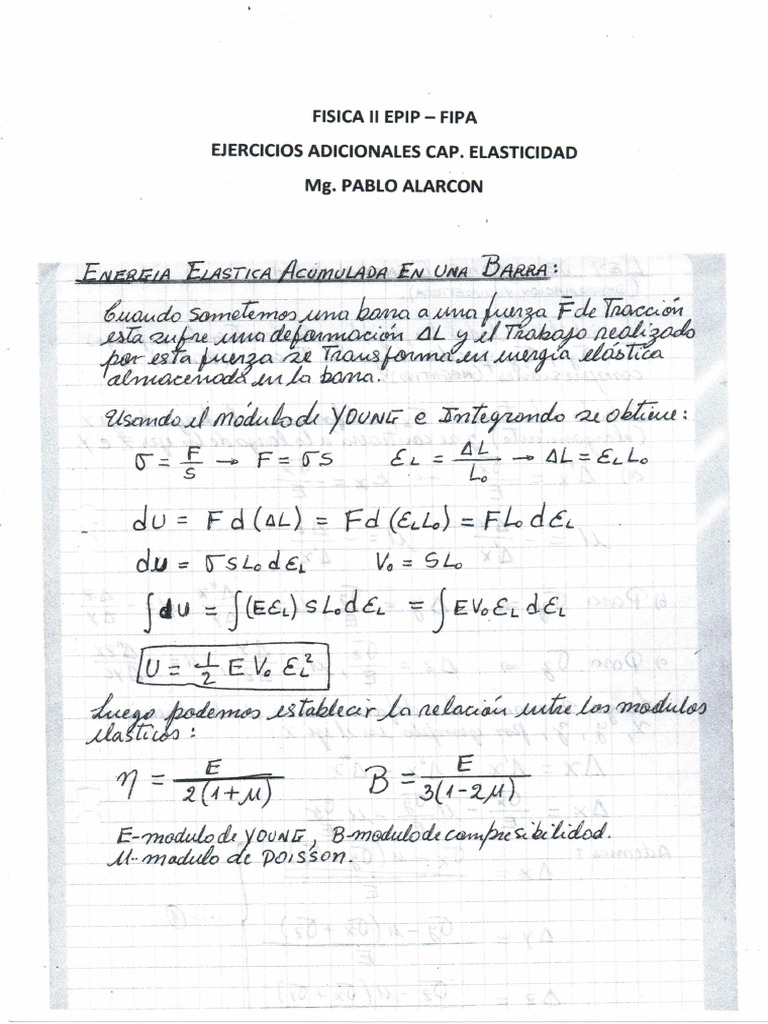 FISICA II EPIP – FIPA
EJERCICIOS ADICIONALES CAP. ELASTICIDAD
Mg. PABLO ALARCON
ENERGIA ELASTICA ACUMULADA EN UNA BARRA:
Cuando sometemos una barra a una fuerza F̄ de Tracción
esta sufre una deformación ΔL y el Trabajo realizado
por esta fuerza se Transforma en energía elástica
almacenada en la barra.
Usando el módulo de YOUNG e Integrando se obtiene:
σ = F/S → F = σS   ε_L = ΔL/L₀ → ΔL = ε_L L₀
dU = F d(ΔL) = F d(ε_L L₀) = F L₀ dε_L
du = σ S L₀ dε_L   V₀ = S L₀
∫dU = ∫(Eε_L) S L₀ dε_L = ∫ E V₀ ε_L dε_L
U = 1/2 E V₀ ε_L²
Luego podemos establecer la relación entre los modulos
elasticos:
η = E/2(1+μ)   B = E/3(1-2μ)
E-modulo de YOUNG, B-modulo de compresibilidad.
μ-modulo de POISSON.